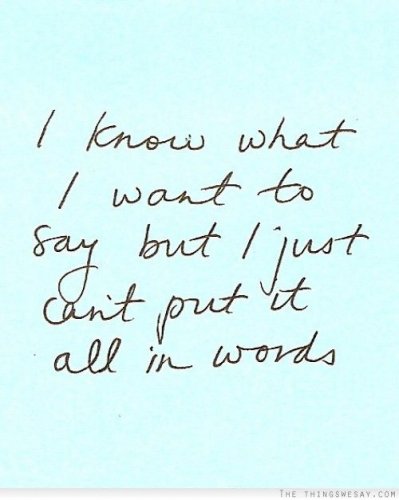 I know what
I want to
say but I just
can't put it
all in words
THE THINGSWESAY.COM